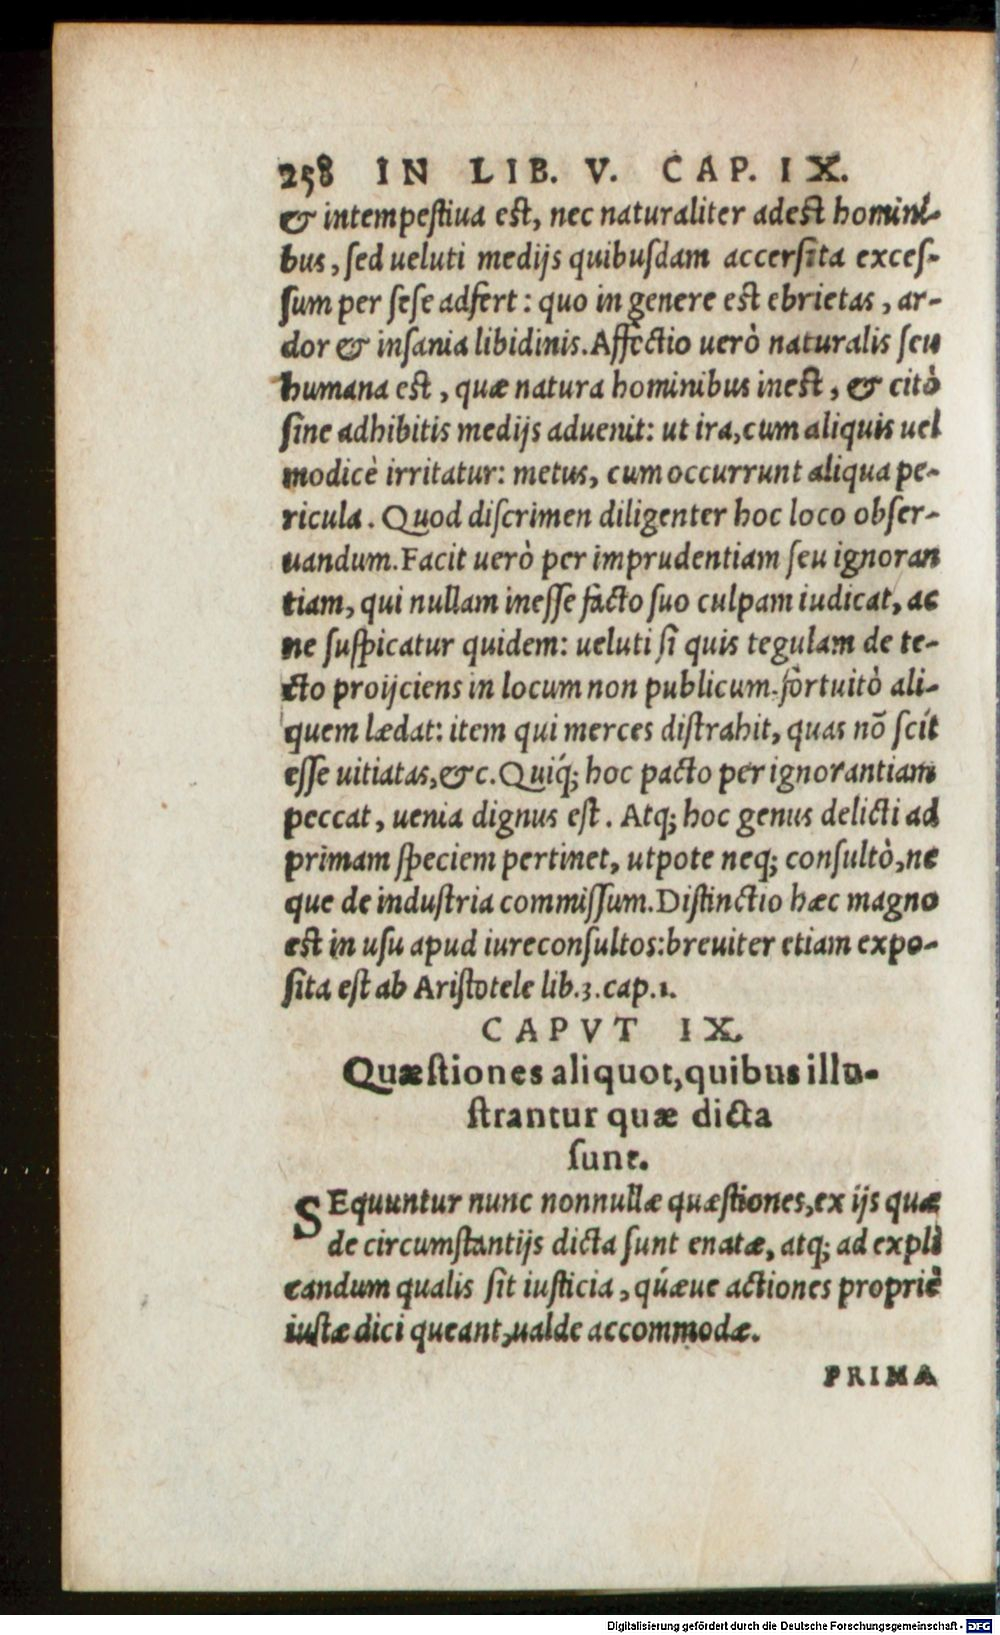 258 IN LIB. V. CAP. IX.
& intempeſtiua eſt, nec naturaliter adeſt homini-
bus, ſed ueluti medijs quibuſdam accerſita exceſ-
ſum per ſeſe adfert: quo in genere eſt ebrietas, ar-
dor & inſania libidinis. Affectio uerò naturalis ſeu
humana eſt, quæ natura hominibus ineſt, & citò
ſine adhibitis medijs aduenit: ut ira, cum aliquis uel
modicè irritatur: metus, cum occurrunt aliqua pe-
ricula. Quod diſcrimen diligenter hoc loco obſer-
uandum. Facit uerò per imprudentiam ſeu ignoran
tiam, qui nullam ineſſe facto ſuo culpam iudicat, ac
ne ſuſpicatur quidem: ueluti ſi quis tegulam de te-
cto proijciens in locum non publicum fortuitò ali-
quem lædat: item qui merces diſtrahit, quas nõ ſcit
eſſe uitiatas, &c. Quiq́; hoc pacto per ignorantiam
peccat, uenia dignus eſt. Atq; hoc genus delicti ad
primam ſpeciem pertinet, utpote neq; conſultò, ne
que de induſtria commiſſum. Diſtinctio hæc magno
eſt in uſu apud iureconſultos: breuiter etiam expo-
ſita eſt ab Ariſtotele lib. 3. cap. 1.
CAPVT IX.
Quæſtiones aliquot, quibus illu-
ſtrantur quæ dicta
ſunt.
SEquuntur nunc nonnullæ quæſtiones, ex ijs quæ
de circumſtantijs dicta ſunt enatæ, atq; ad expli
candum qualis ſit iuſticia, qúæue actiones propriè
iuſtæ dici queant, ualde accommodæ.
PRIMA
Digitalisierung gefördert durch die Deutsche Forschungsgemeinschaft - DFG